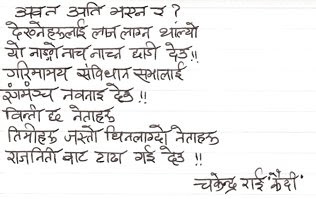 अबत अति भएन र ?
देख्नेहरूलाई लाज लाग्न थाल्यो
यो नाङ्गो नाच नाच्न छाडी देउ !!
गरिमामय संविधान सभालाई
रंगमञ्च नबनाई देउ !!
विन्ती छ नेताहरू
तिमीहरू जस्तो घिनलाग्दो नेताहरू
राजनिती बाट टाढा गई देउ !!
चकेन्द्र राई "कैदी"